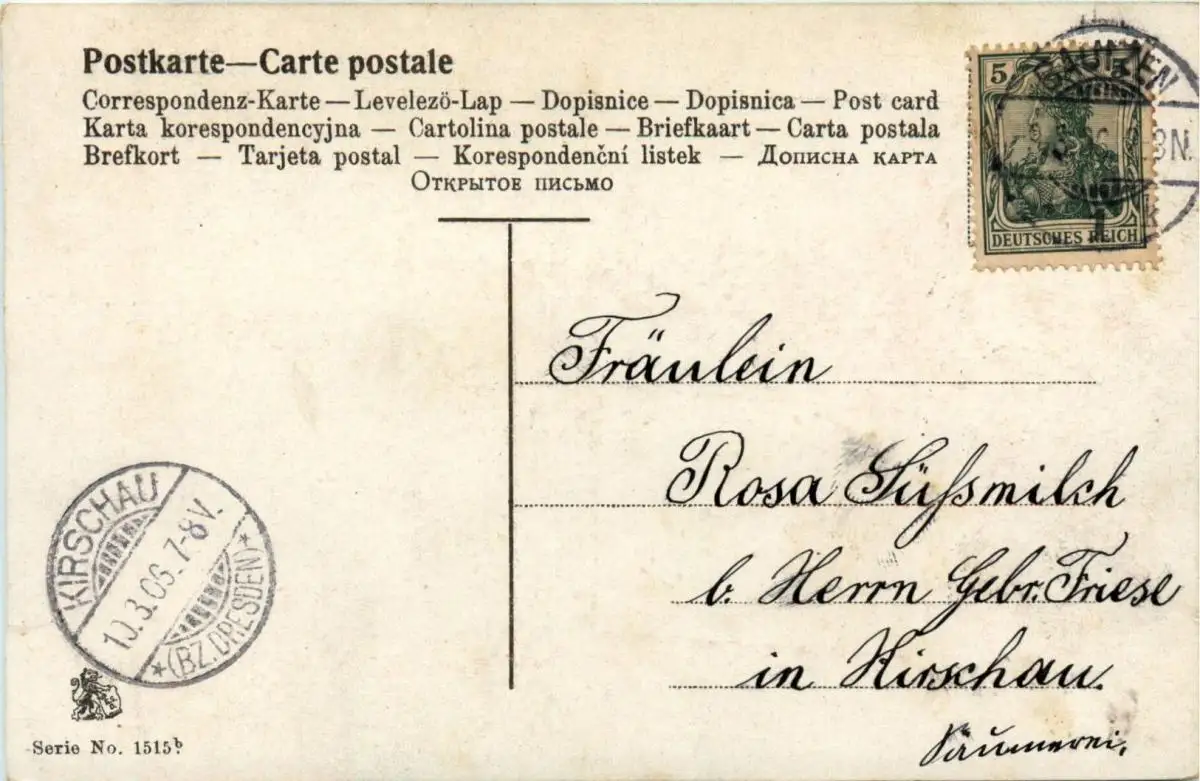 Postkarte—Carte postale
Correspondenz-Karte — Levelező-Lap — Dopisnice — Dopisnica — Post card
Karta korespondencyjna — Cartolina postale — Briefkaart — Carta postala
Brefkort — Tarjeta postal — Korespondenční listek — Дописна карта
Открытое письмо
5
BAUTZEN
8N.
DEUTSCHES REICH
Fräulein
Rosa Süßsmilch
b. Herrn Gebr. Friese
in Kirschau.
Säumerei.
KIRSCHAU
10.3.06. 7-8V.
*(BZ. DRESDEN)*
Serie No. 1515b